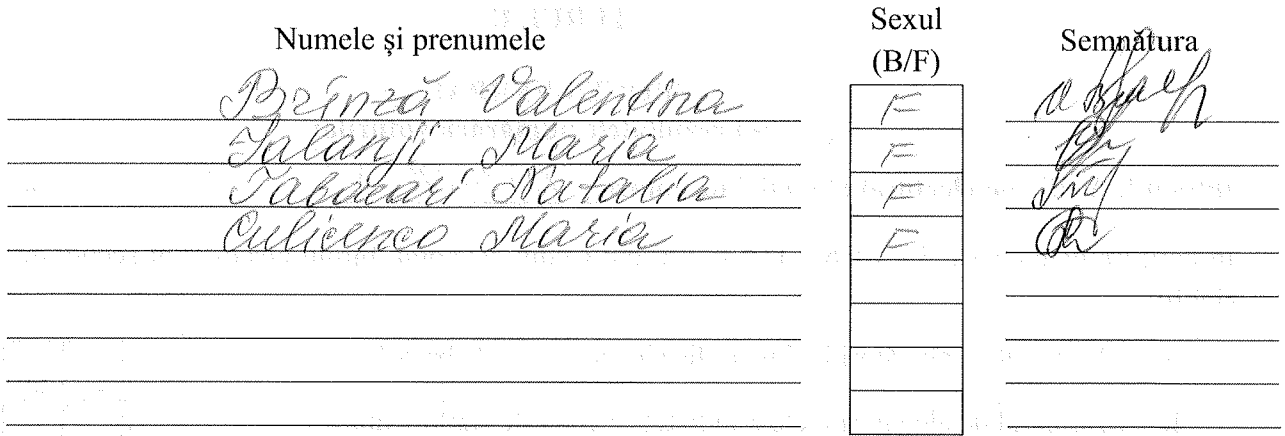 Numele și prenumele Sexul (B/F) Semnătura
Brînză Valentina F
Galanji Maria F
Tabacari Natalia F
Culicenco Maria F